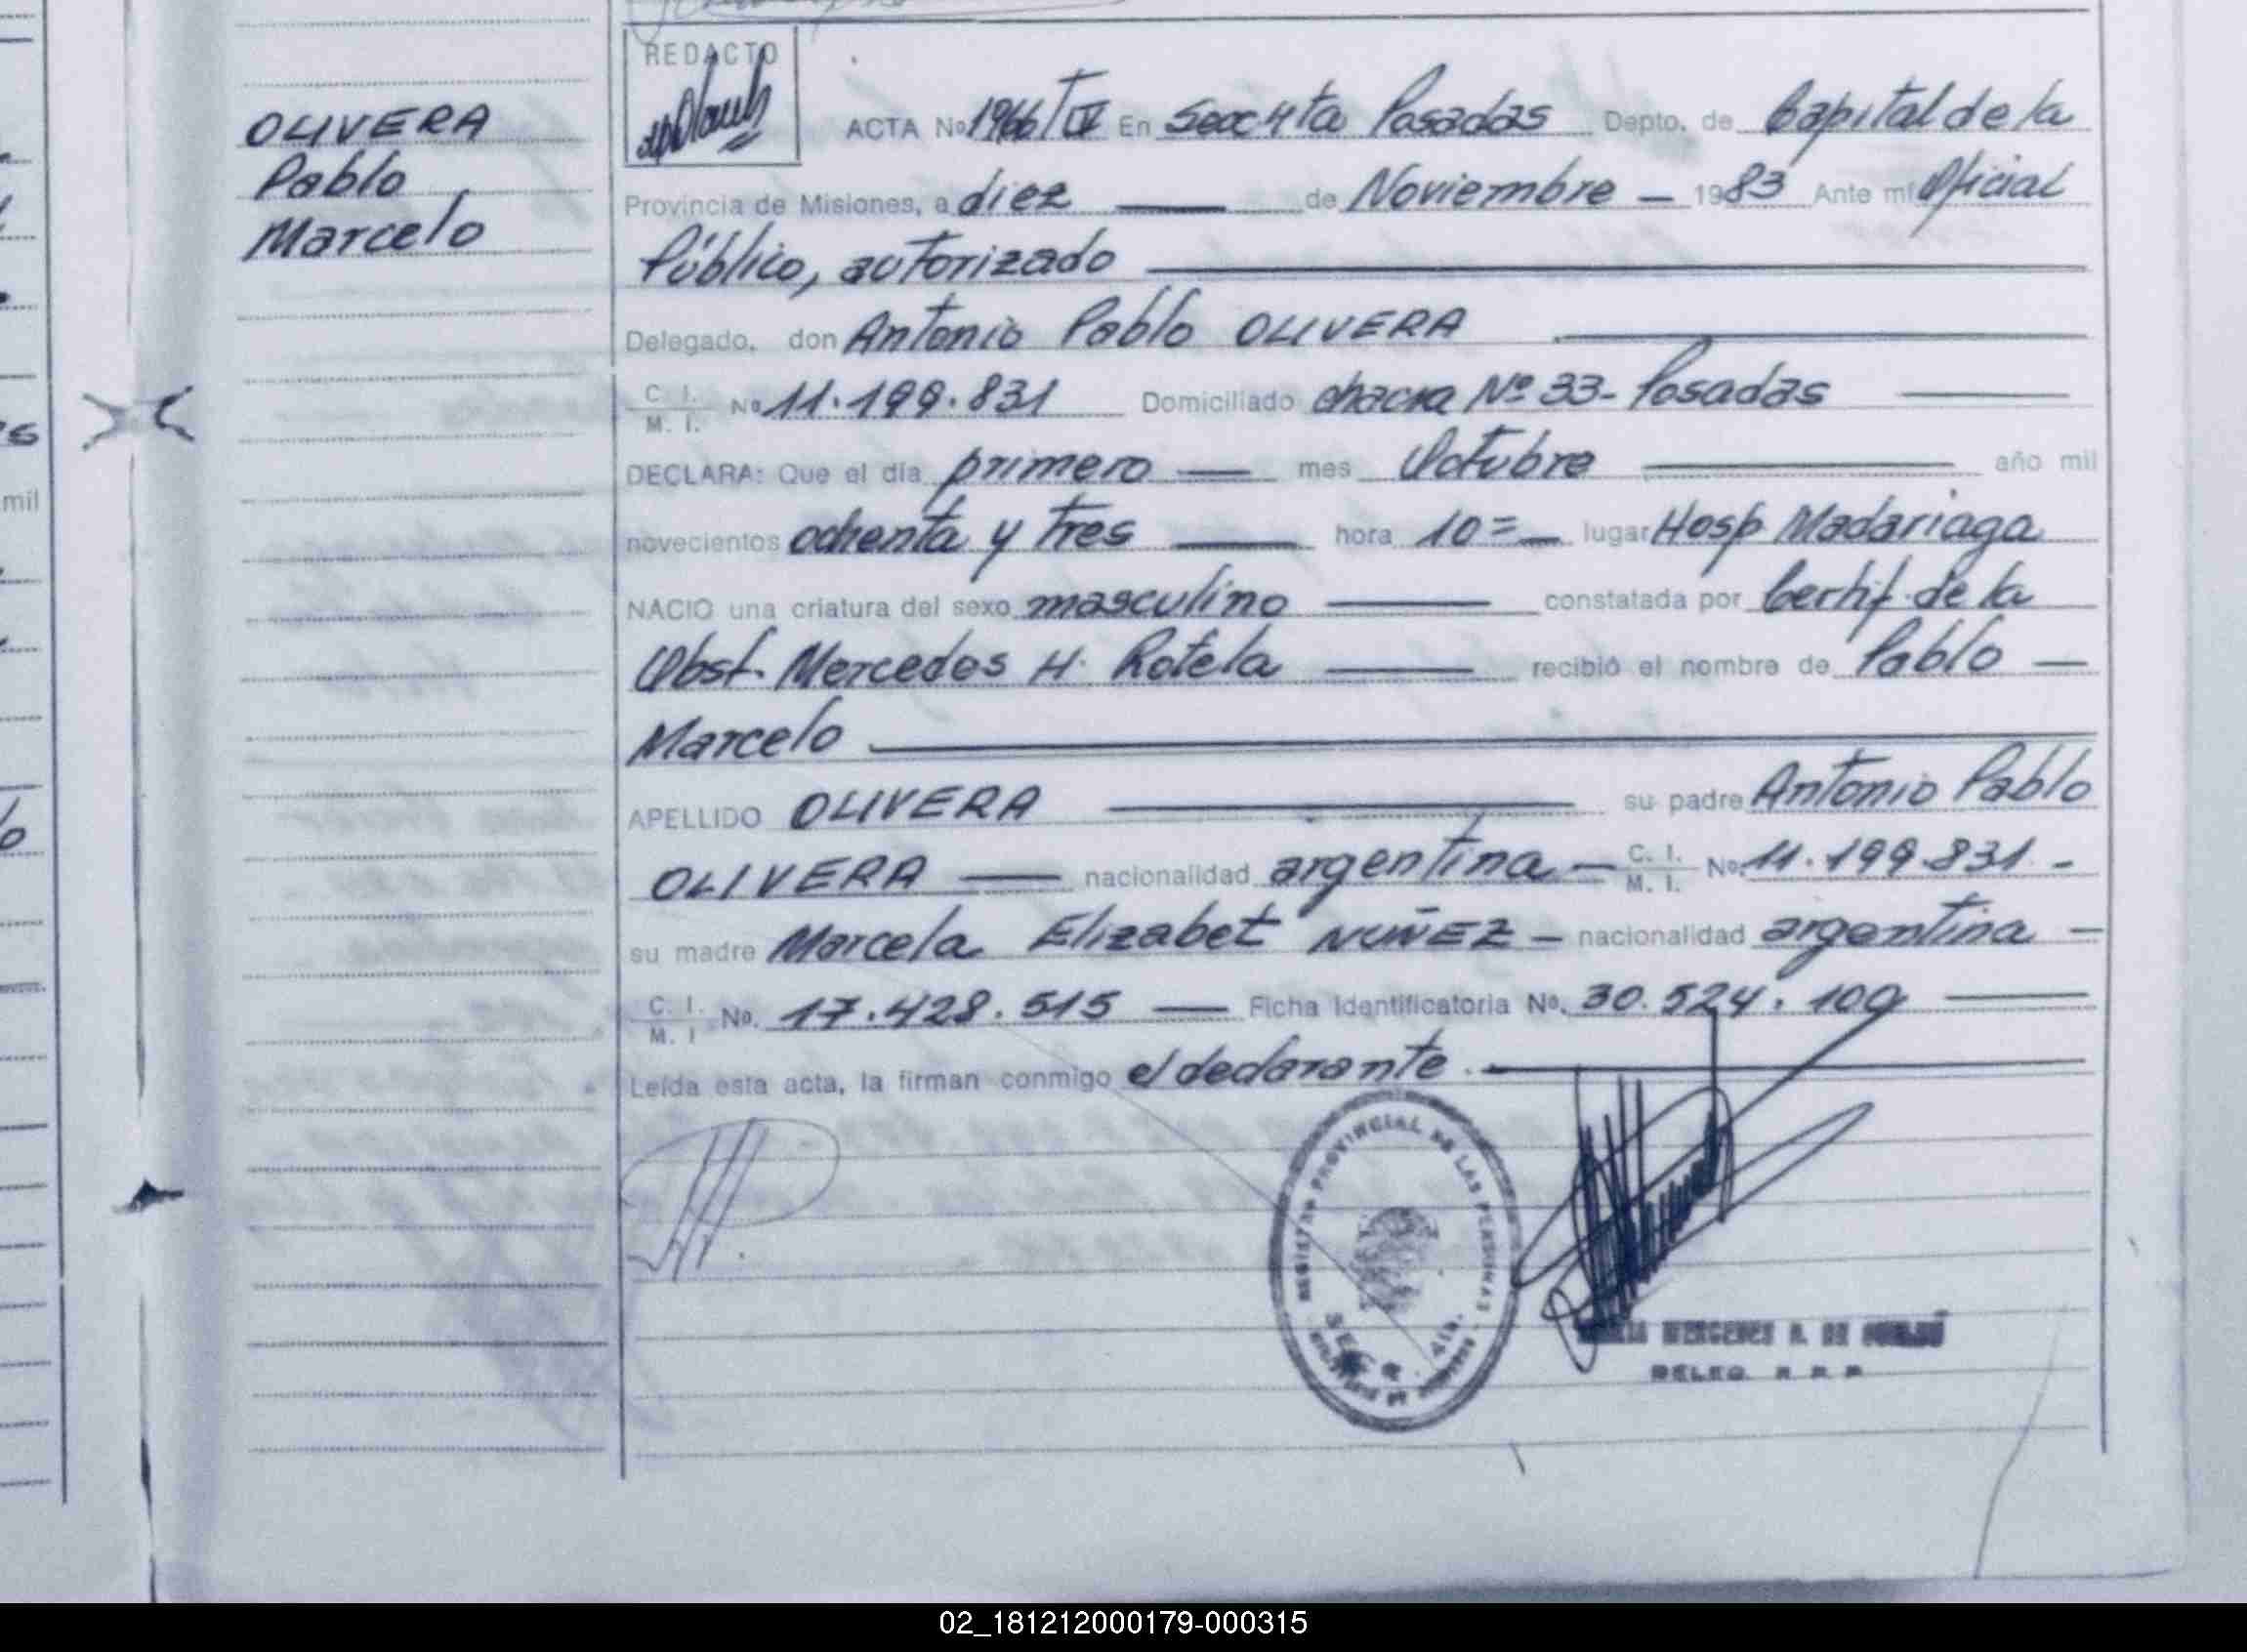 OLIVERA
Pablo
Marcelo
REDACTO
ACTA No 1966/IV En Secc 4ta Posadas Depto. de Capital de la
Provincia de Misiones, a diez — de Noviembre — 1983 Ante mí Oficial
Público, autorizado
Delegado, don Antonio Pablo OLIVERA
C. I. M. I. No 11.199.831 Domiciliado chacra Nº 33- Posadas
DECLARA: Que el día primero — mes Octubre — año mil
novecientos ochenta y tres — hora 10= — lugar Hosp Madariaga
NACIO una criatura del sexo masculino — constatada por Certif. de la
Obst. Mercedes H. Rotela — recibió el nombre de Pablo —
Marcelo
APELLIDO OLIVERA — su padre Antonio Pablo
OLIVERA — nacionalidad argentina — C. I. M. I. No. 11.199.831. -
su madre Marcela Elizabet NUÑEZ — nacionalidad argentina —
C. I. M. I No. 17.428.515 — Ficha Identificatoria No. 30.524.100
Leída esta acta, la firman conmigo el declarante.
REGISTRO PROVINCIAL DE LAS PERSONAS
SECC. 4ta.
DELEG. R. P. P.
mil
02_181212000179-000315